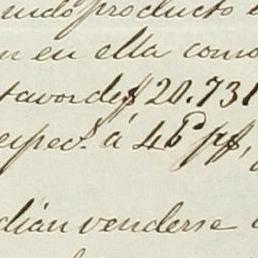 undo producto
n en ella como
favor de $ 20.731
espec.s á 46 p$,
dian venderse